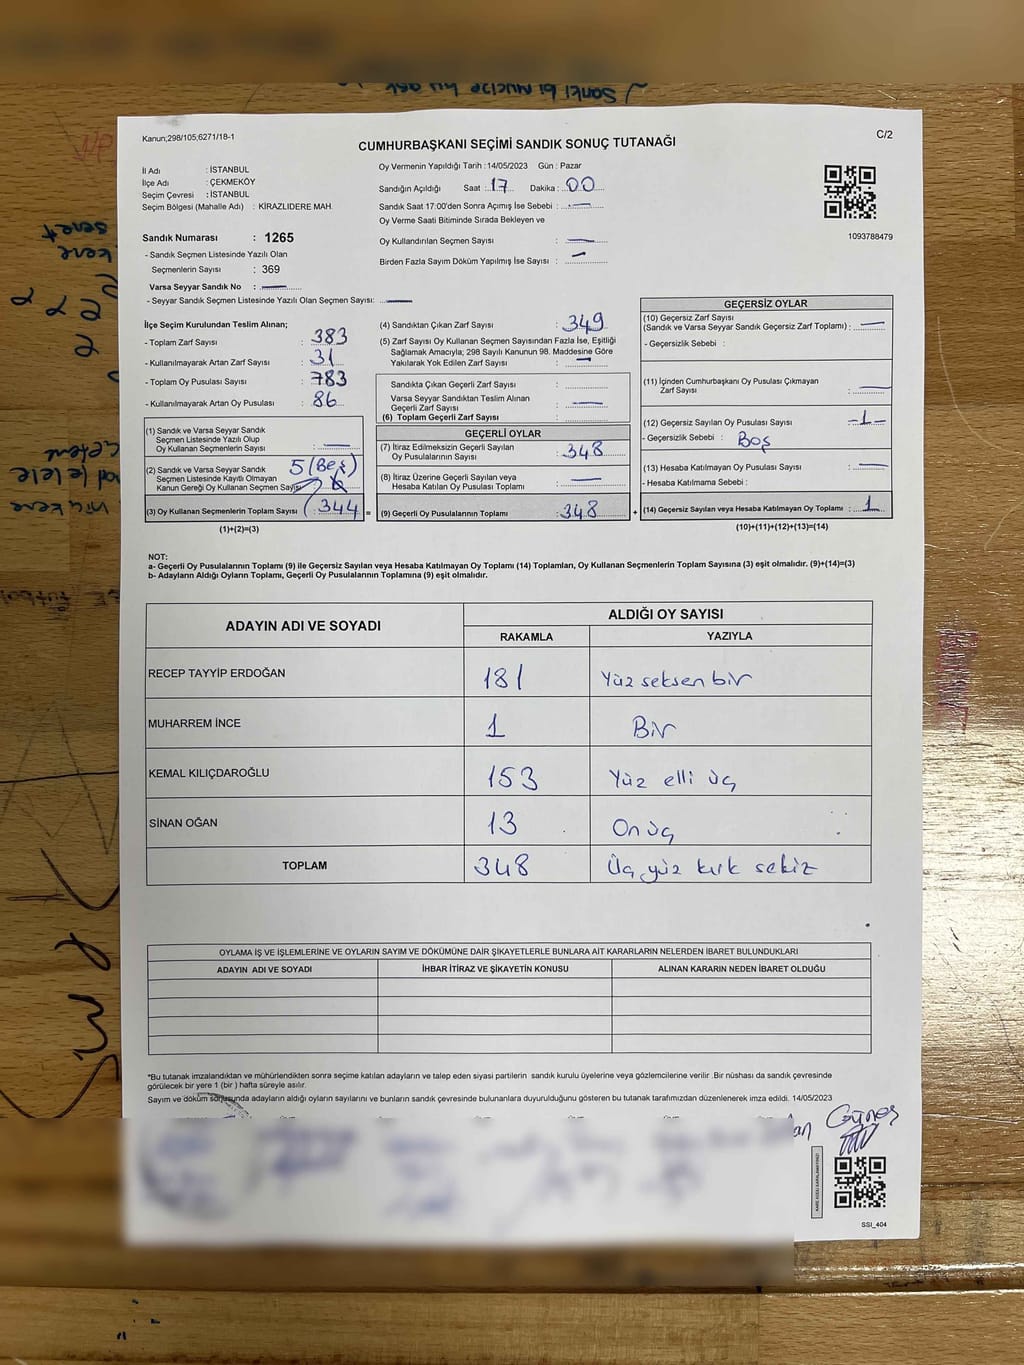 Sanki bi mucize bu aşk
Kanun;298/105;6271/18-1
C/2
CUMHURBAŞKANI SEÇİMİ SANDIK SONUÇ TUTANAĞI
İl Adı : İSTANBUL
İlçe Adı : ÇEKMEKÖY
Seçim Çevresi : İSTANBUL
Seçim Bölgesi (Mahalle Adı) : KİRAZLIDERE MAH.
Oy Vermenin Yapıldığı Tarih :14/05/2023 Gün : Pazar
Sandığın Açıldığı Saat :..17... Dakika :..00...
Sandık Saat 17:00'den Sonra Açımış İse Sebebi : —
Oy Verme Saati Bitiminde Sırada Bekleyen ve
Oy Kullandırılan Seçmen Sayısı : —
Birden Fazla Sayım Döküm Yapılmış İse Sayısı : —
1093788479
Sandık Numarası : 1265
- Sandık Seçmen Listesinde Yazılı Olan
Seçmenlerin Sayısı : 369
Varsa Seyyar Sandık No : —
- Seyyar Sandık Seçmen Listesinde Yazılı Olan Seçmen Sayısı: —
İlçe Seçim Kurulundan Teslim Alınan;
- Toplam Zarf Sayısı : 383
- Kullanılmayarak Artan Zarf Sayısı : 31
- Toplam Oy Pusulası Sayısı : 783
- Kullanılmayarak Artan Oy Pusulası : 86
(1) Sandık ve Varsa Seyyar Sandık
Seçmen Listesinde Yazılı Olup
Oy Kullanan Seçmenlerin Sayısı : —
(2) Sandık ve Varsa Seyyar Sandık
Seçmen Listesinde Kayıtlı Olmayan
Kanun Gereği Oy Kullanan Seçmen Sayısı
5 (Beş)
(3) Oy Kullanan Seçmenlerin Toplam Sayısı 344 =
(1)+(2)=(3)
(4) Sandıktan Çıkan Zarf Sayısı : 349
(5) Zarf Sayısı Oy Kullanan Seçmen Sayısından Fazla İse, Eşitliği
Sağlamak Amacıyla; 298 Sayılı Kanunun 98. Maddesine Göre
Yakılarak Yok Edilen Zarf Sayısı : —
Sandıkta Çıkan Geçerli Zarf Sayısı :
Varsa Seyyar Sandıktan Teslim Alınan
Geçerli Zarf Sayısı : —
(6) Toplam Geçerli Zarf Sayısı :
GEÇERLİ OYLAR
(7) İtiraz Edilmeksizin Geçerli Sayılan
Oy Pusulalarının Sayısı : 348
(8) İtiraz Üzerine Geçerli Sayılan veya
Hesaba Katılan Oy Pusulası Toplamı : —
(9) Geçerli Oy Pusulalarının Toplamı : 348 +
GEÇERSİZ OYLAR
(10) Geçersiz Zarf Sayısı
(Sandık ve Varsa Seyyar Sandık Geçersiz Zarf Toplamı) : —
- Geçersizlik Sebebi :
(11) İçinden Cumhurbaşkanı Oy Pusulası Çıkmayan
Zarf Sayısı : —
(12) Geçersiz Sayılan Oy Pusulası Sayısı : -1-
- Geçersizlik Sebebi : Boş
(13) Hesaba Katılmayan Oy Pusulası Sayısı : —
- Hesaba Katılmama Sebebi :
(14) Geçersiz Sayılan veya Hesaba Katılmayan Oy Toplamı : 1
(10)+(11)+(12)+(13)=(14)
NOT:
a- Geçerli Oy Pusulalarının Toplamı (9) ile Geçersiz Sayılan veya Hesaba Katılmayan Oy Toplamı (14) Toplamları, Oy Kullanan Seçmenlerin Toplam Sayısına (3) eşit olmalıdır. (9)+(14)=(3)
b- Adayların Aldığı Oyların Toplamı, Geçerli Oy Pusulalarının Toplamına (9) eşit olmalıdır.
ADAYIN ADI VE SOYADI ALDIĞI OY SAYISI
RAKAMLA YAZIYLA
RECEP TAYYİP ERDOĞAN 181 Yüz seksen bir
MUHARREM İNCE 1 Bir
KEMAL KILIÇDAROĞLU 153 Yüz elli üç
SİNAN OĞAN 13 On üç
TOPLAM 348 Üç yüz kırk sekiz
OYLAMA İŞ VE İŞLEMLERİNE VE OYLARIN SAYIM VE DÖKÜMÜNE DAİR ŞİKAYETLERLE BUNLARA AİT KARARLARIN NELERDEN İBARET BULUNDUKLARI
ADAYIN ADI VE SOYADI İHBAR İTİRAZ VE ŞİKAYETİN KONUSU ALINAN KARARIN NEDEN İBARET OLDUĞU
*Bu tutanak imzalandıktan ve mühürlendikten sonra seçime katılan adayların ve talep eden siyasi partilerin sandık kurulu üyelerine veya gözlemcilerine verilir .Bir nüshası da sandık çevresinde
görülecek bir yere 1 (bir ) hafta süreyle asılır.
Sayım ve döküm sonrasında adayların aldığı oyların sayılarını ve bunların sandık çevresinde bulunanlara duyurulduğunu gösteren bu tutanak tarafımızdan düzenlenerek imza edildi. 14/05/2023
Güneş
SSI_404